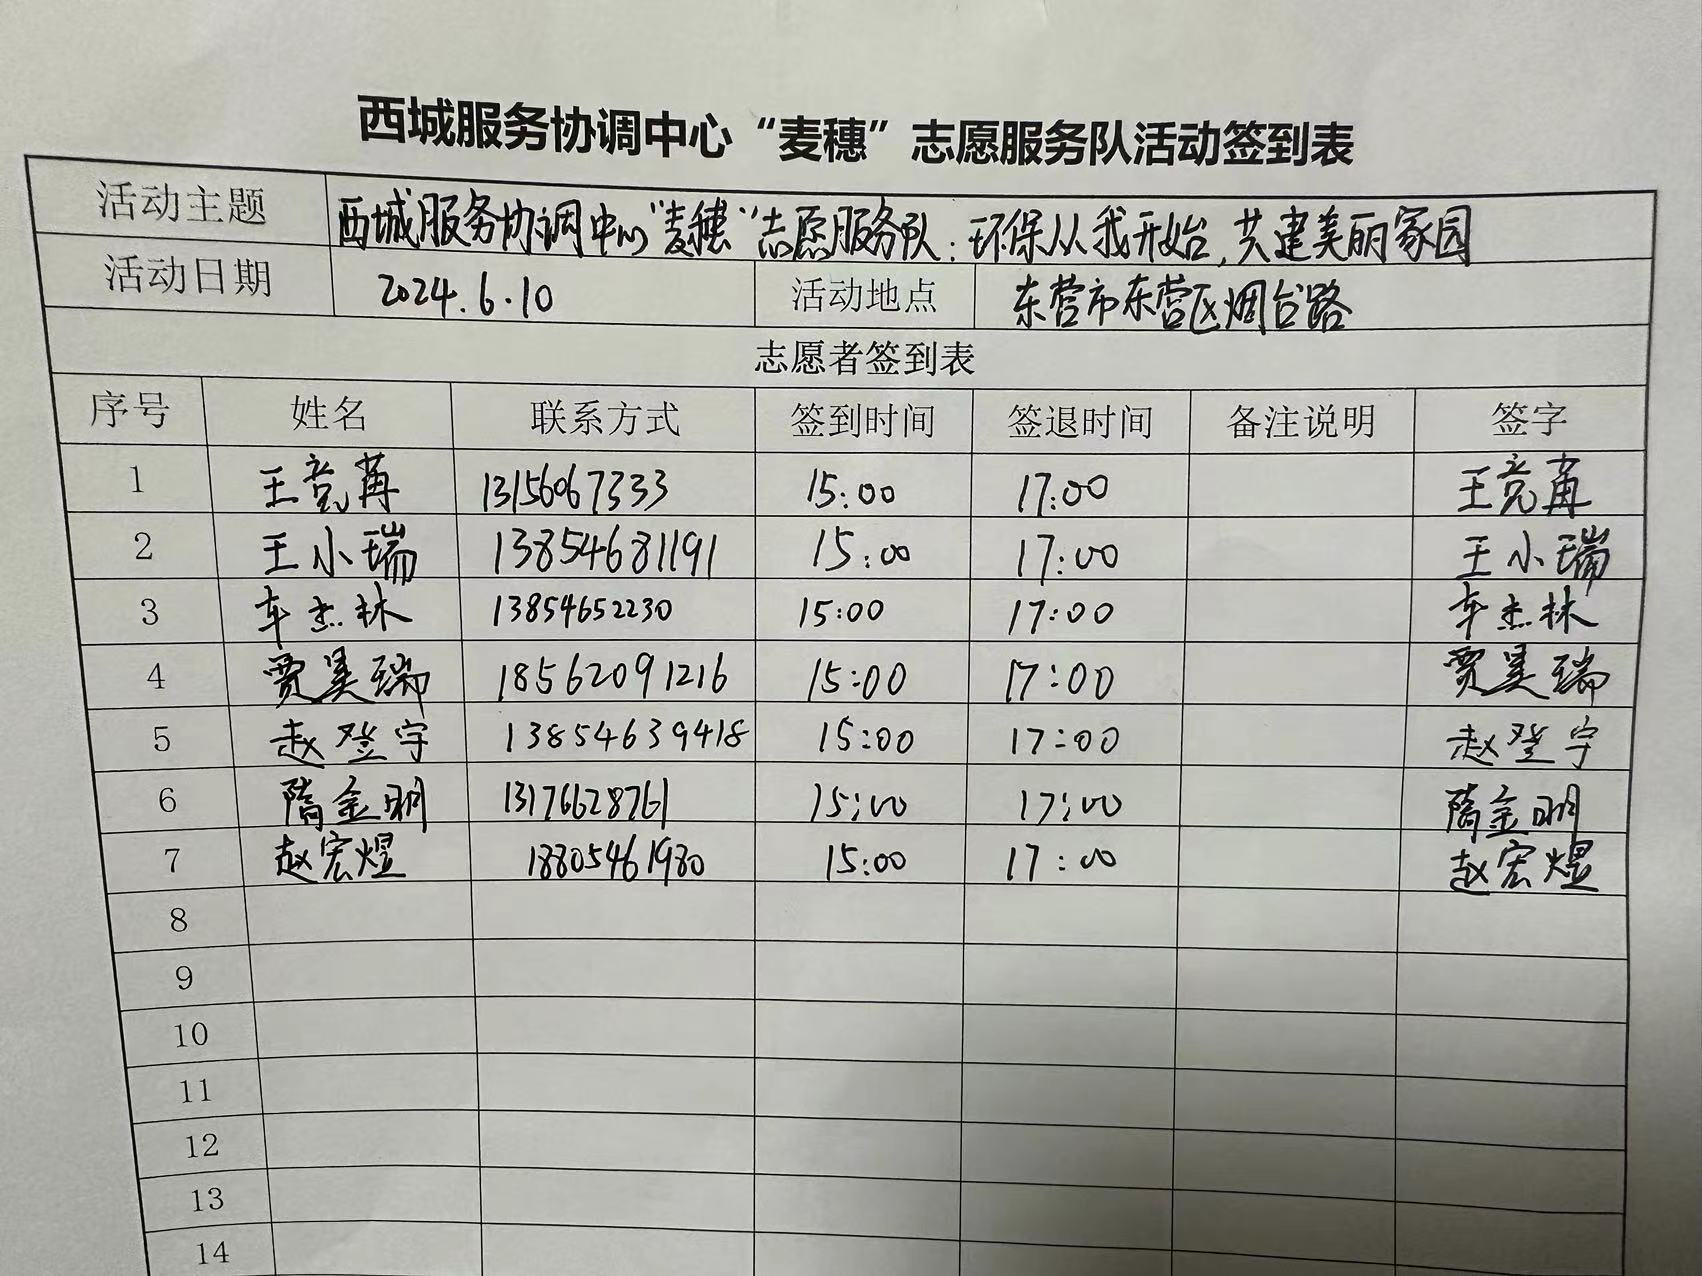 西城服务协调中心“麦穗”志愿服务队活动签到表
活动主题 西城服务协调中心“麦穗”志愿服务队:环保从我开始,共建美丽家园
活动日期 2024.6.10 活动地点 东营市东营区烟台路
志愿者签到表
序号 姓名 联系方式 签到时间 签退时间 备注说明 签字
1 王竞苒 13156067333 15:00 17:00 王竞苒
2 王小瑞 13854681191 15:00 17:00 王小瑞
3 车杰林 13854652230 15:00 17:00 车杰林
4 贾昊瑞 18562091216 15:00 17:00 贾昊瑞
5 赵登宇 13854639418 15:00 17:00 赵登宇
6 隋金明 13176628761 15:00 17:00 隋金明
7 赵宏煜 18805461980 15:00 17:00 赵宏煜
8
9
10
11
12
13
14